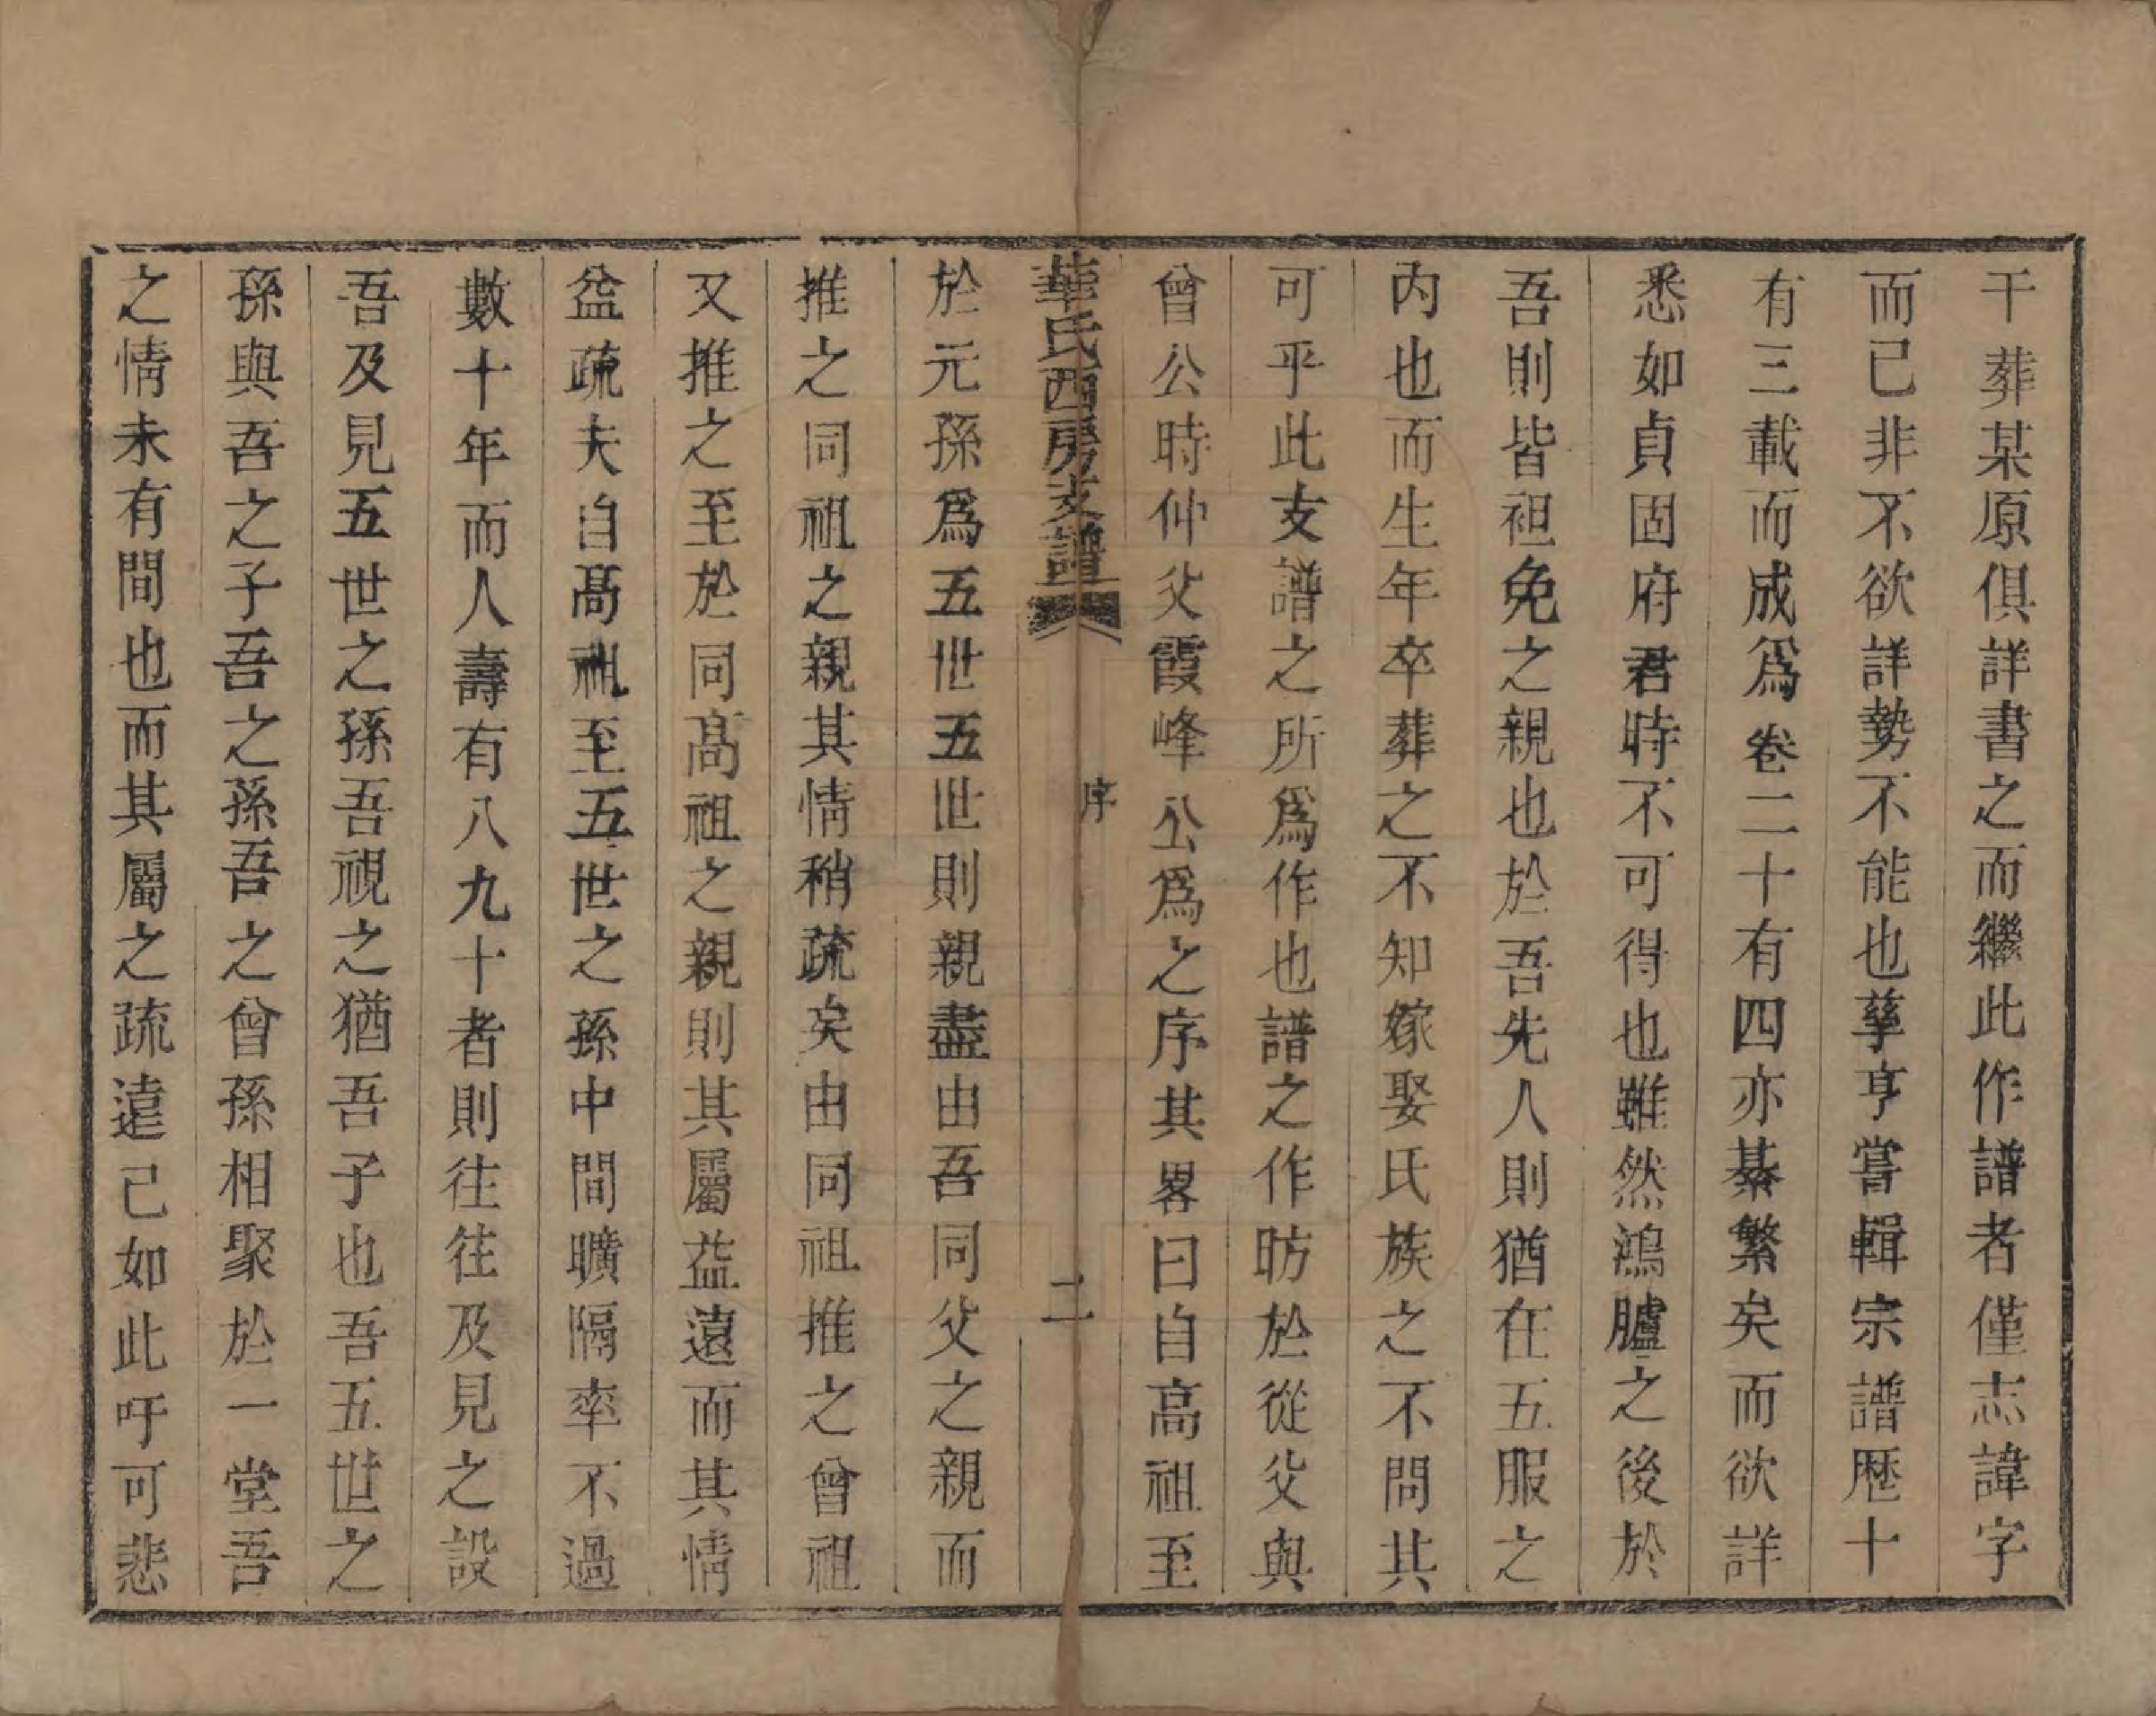 干葬某原俱詳書之而繼此作譜者僅志諱字
而已非不欲詳勢不能也孳亨嘗輯宗譜歴十
有三載而成爲卷二十有四亦綦繁矣而欲詳
悉如貞固府君時不可得也雖然鴻臚之後於
吾則皆袒免之親也於吾先人則猶在五服之
内也而生年卒葬之不知嫁娶氏族之不問其
可乎此支譜之所爲作也譜之作昉於從父與
曾公時仲父霞峰公爲之序其畧曰自高祖至
華氏西房支譜
序
二
於元孫爲五世五世則親盡由吾同父之親而
推之同祖之親其情稍疏矣由同祖推之曾祖
又推之至於同髙祖之親則其屬益遠而其情
益疏夫自髙祖至五世之孫中間曠隔率不過
數十年而人壽有八九十者則往往及見之設
吾及見五世之孫吾視之猶吾子也吾五世之
孫與吾之子吾之孫吾之曾孫相聚於一堂吾
之情未有間也而其屬之疏遠已如此吁可悲